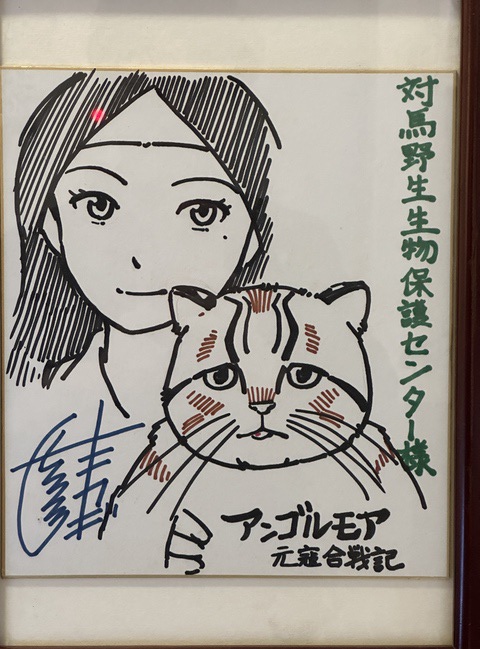 対馬野生生物保護センター様
アンゴルモア
元寇合戦記